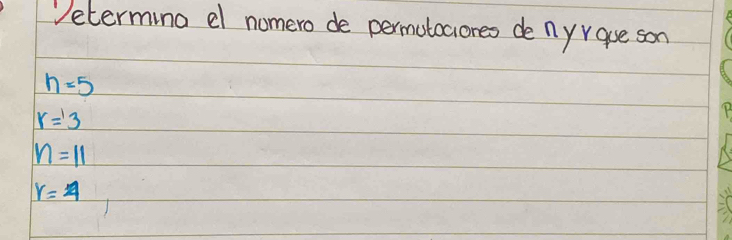 Determina el numero de permutaciones de n y r que son
n=5
r=3
n=11
r=4